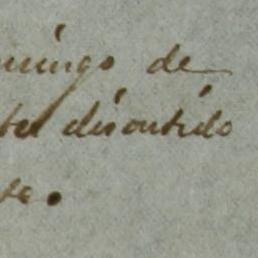 mingo de
te discutido
te.